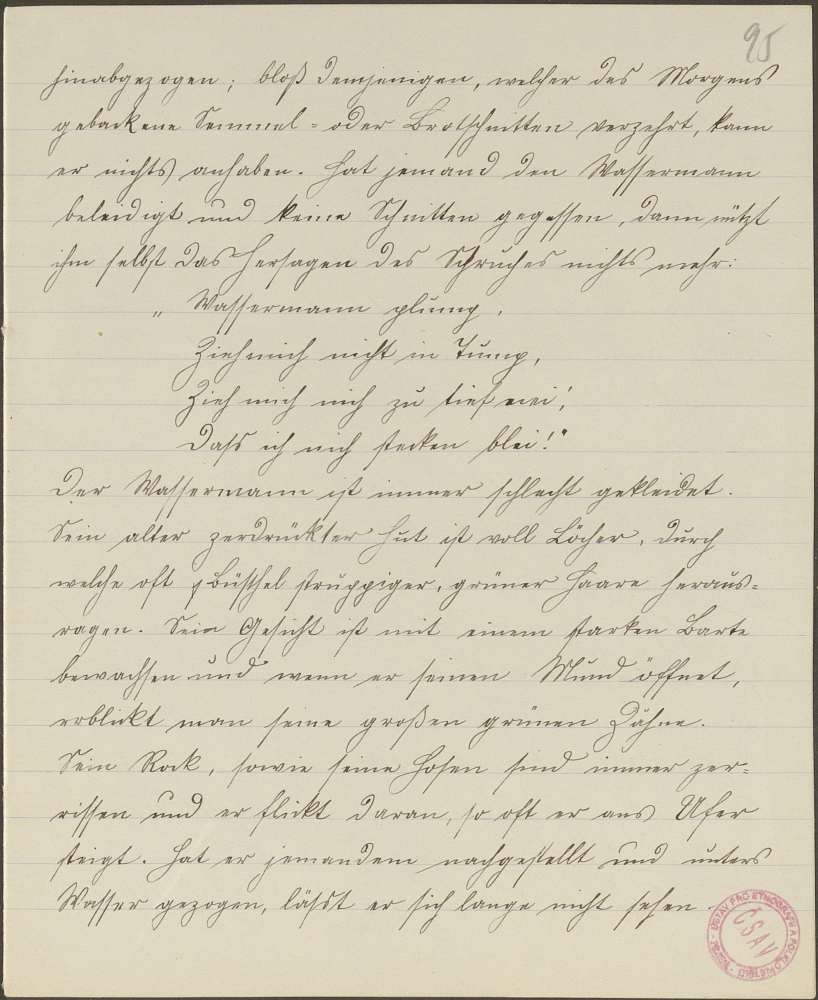 95
hinabgezogen; bloß demjenigen, welcher des Morgens
gebackene Semmel- oder Brotschnitten verzehrt, kann
er nichts anhaben. Hat jemand den Wassermann
beleidigt und keine Schnitten gegessen, dann nützt
ihm selbst das Hersagen des Spruches nichts mehr:
„Wassermann plump,
Zieh mich nicht in Tump,
Zieh mich nich zu tief nei,
Dass ich nich stecken blei!"
Der Wassermann ist immer schlecht gekleidet.
Sein alter zerdrückter Hut ist voll Löcher, durch
welche oft Büschel struppiger, grüner Haare heraus-
ragen. Sein Gesicht ist mit einem starken Barte
bewachsen und wenn er seinen Mund öffnet,
erblickt man seine großen grünen Zähne.
Sein Rock, sowie seine Hosen sind immer zer-
rissen und er flickt daran, so oft er ans Ufer
steigt. Hat er jemandem nachgestellt und unters
Wasser gezogen, lässt er sich lange nicht sehen.
ÚSTAV PRO ETNOGRAFII A FOLKLORISTIKU
ČSAV